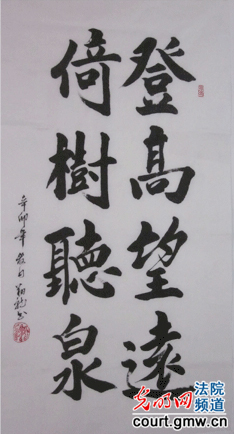 登高望遠
倚樹聽泉
辛卯年
光明网
法院
频道
court.gmw.cn